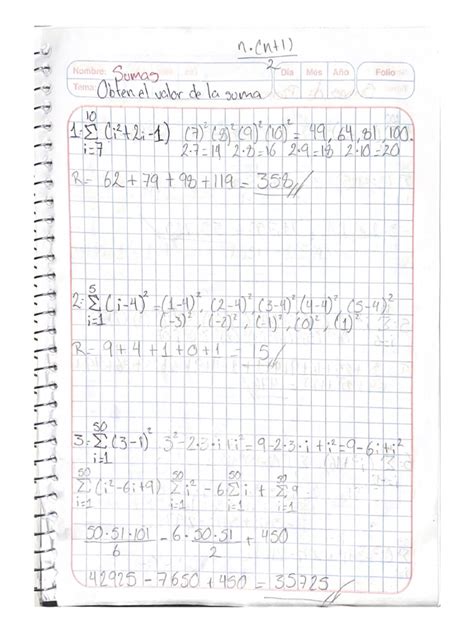 n·(n+1)
2
Nombre: Sumas Día Mes Año Folio
Tema: Obten el valor de la suma
10
1: Σ (i²+2i-1) (7)² (8)² (9)² (10)² = 49, 64, 81, 100.
i=7 2·7=14 2·8=16 2·9=18 2·10=20
R= 62 + 79 + 98 + 119 = 358//
5
2: Σ (i-4)² = (1-4)², (2-4)² (3-4)² (4-4)², (5-4)²
i=1 (-3)², (-2)², (-1)², (0)², (1)²
R= 9 + 4 + 1 + 0 + 1 = 15//
50
3: Σ (3-i)² 3²-2·3·i+i² = 9-2·3·i+i² = 9-6i+i²
i=1
50 50 50 50
Σ (i²-6i+9) Σ i² - 6 Σ i + Σ 9
i=1 i=1 i=1 i=1
50·51·101 - 6·50·51 + 450
6 2
42925 - 7650 + 450 = 35725//